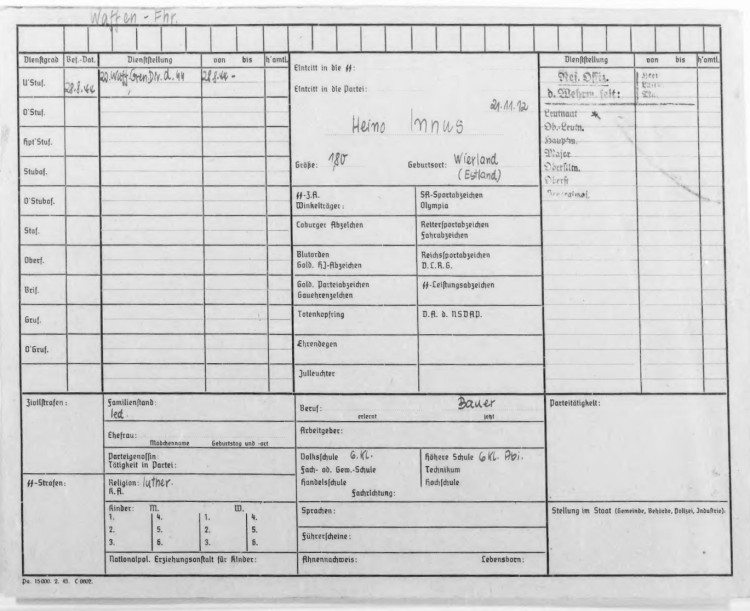 Waffen - Fhr.
Dienstgrad Bef.-Dat. Dienststellung von bis h'amtl.
U'Stuf. 28.8.44 20. Waff.Gren.Div. d. SS 28.8.44 -
O'Stuf.
Hpt'Stuf.
Stubaf.
O'Stubaf.
Staf.
Oberf.
Brif.
Gruf.
O'Gruf.
Eintritt in die SS:
Eintritt in die Partei:
21.11.12
Heino Innus
Größe: 1,80 Geburtsort: Wierland
(Estland)
SS-Z.A. SA-Sportabzeichen
Winkelträger: Olympia
Coburger Abzeichen Reitersportabzeichen
Fahrabzeichen
Blutorden Reichssportabzeichen
Gold. HJ-Abzeichen D.L.R.G.
Gold. Parteiabzeichen SS-Leistungsabzeichen
Gauehrenzeichen
Totenkopfring D.A. d. NSDAP.
Ehrendegen
Julleuchter
Dienststellung von bis h'amtl.
Res. Offz.
d. Wehrm. seit:
Leutnant
Ob.-Leutn.
Hauptm.
Major
Oberstltn.
Oberst
Zivilstrafen:
SS-Strafen:
Familienstand:
led.
Ehefrau:
Mädchenname Geburtstag und -ort
Parteigenossin:
Tätigkeit in Partei:
Religion: luther.
K.A.
Kinder: m. w.
1. 4. 1. 4.
2. 5. 2. 5.
3. 6. 3. 6.
Nationalpol. Erziehungsanstalt für Kinder:
Beruf: Bauer
erlernt jetzt
Arbeitgeber:
Volksschule 6. Kl. Höhere Schule 6 Kl. Abi.
Fach- od. Gew.-Schule Technikum
Handelsschule Hochschule
Fachrichtung:
Sprachen:
Führerscheine:
Ahnennachweis: Lebensborn:
Parteitätigkeit:
Stellung im Staat (Gemeinde, Behörde, Polizei, Industrie):